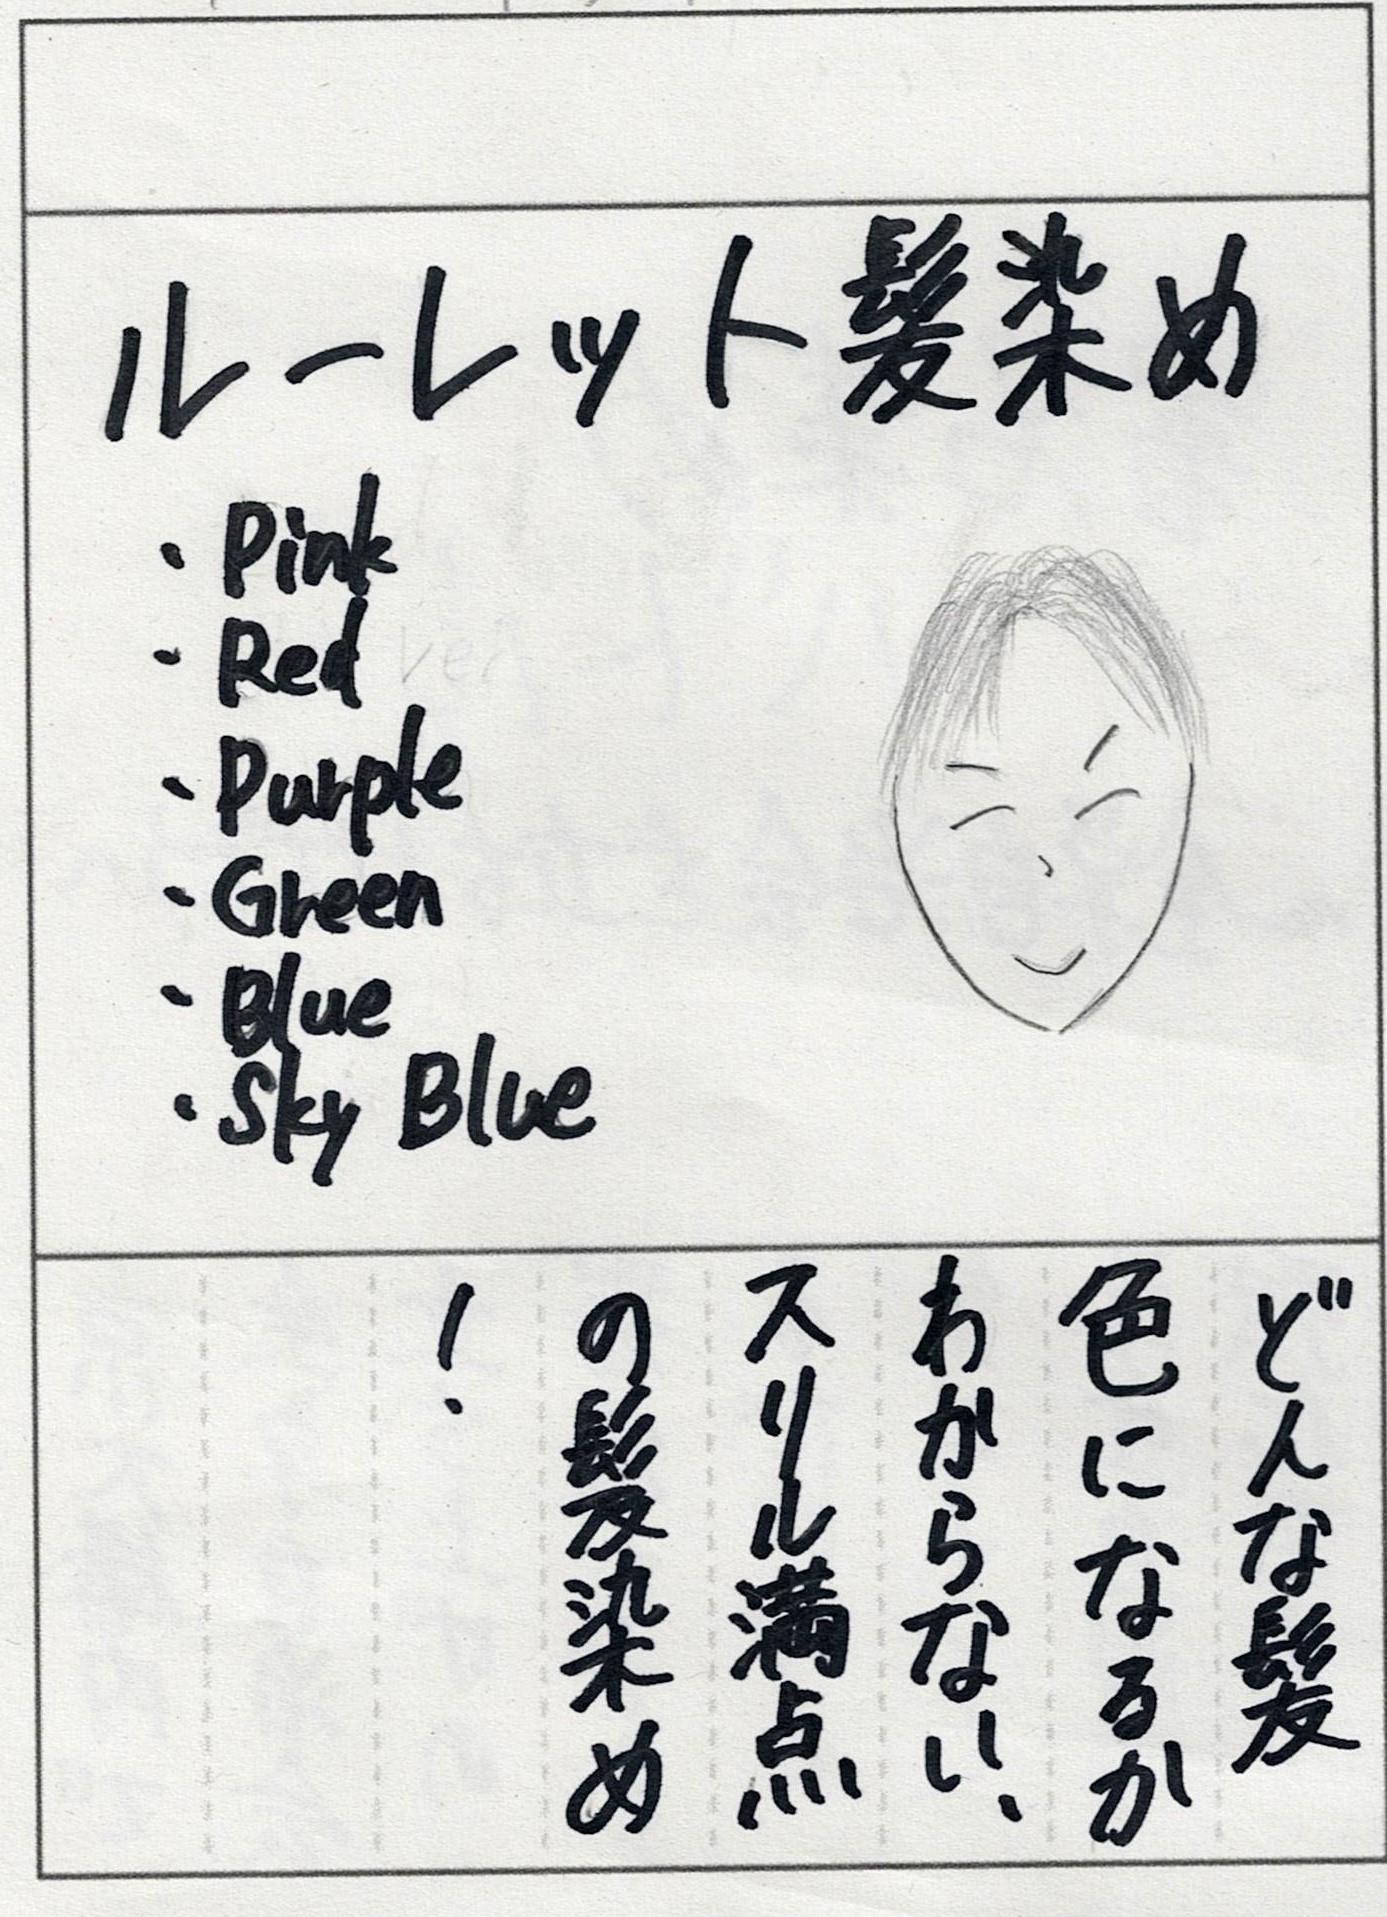 ルーレット髪染め
・Pink
・Red
・Purple
・Green
・Blue
・Sky Blue
どんな髪
色になるか
わからない、
スリル満点
の髪染め
！